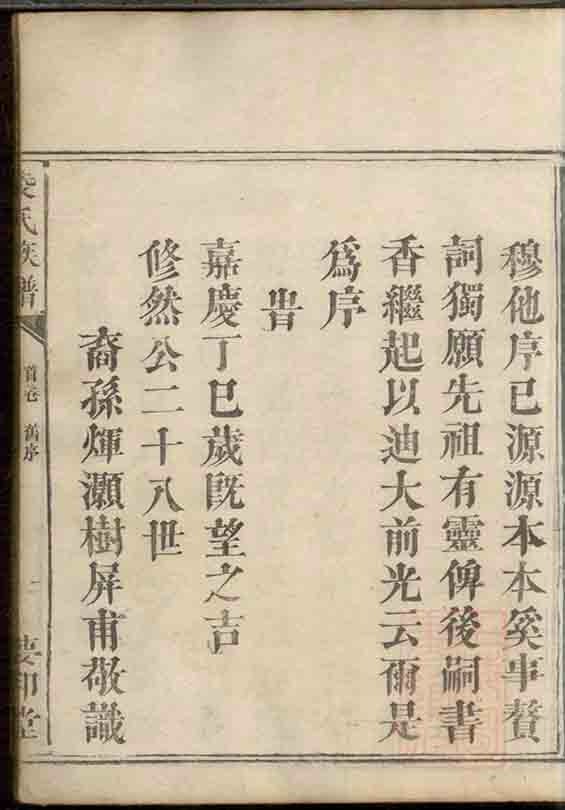 穆他序已源源本本奚事贅
詞獨願先祖有靈俾後嗣書
香繼起以迪大前光云爾是
為序
旹
嘉慶丁巳歲旣望之吉
修然公二十八世
裔孫煇灝樹屏甫敬識
氏族譜
首卷 舊序
堂